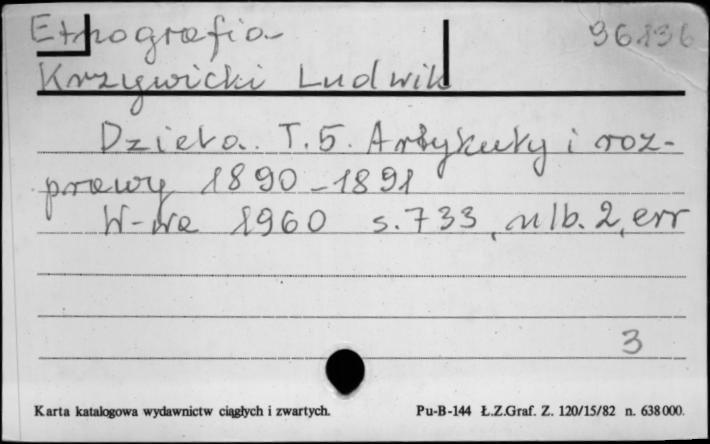 Etnografia 96136
Krzywicki Ludwik
Dzieła. T.5. Artykuły i roz-
prawy 1890-1891
W-wa 1960 s.733, nlb. 2, err
3
Karta katalogowa wydawnictw ciągłych i zwartych. Pu-B-144 Ł.Z.Graf. Z. 120/15/82 n. 638000.